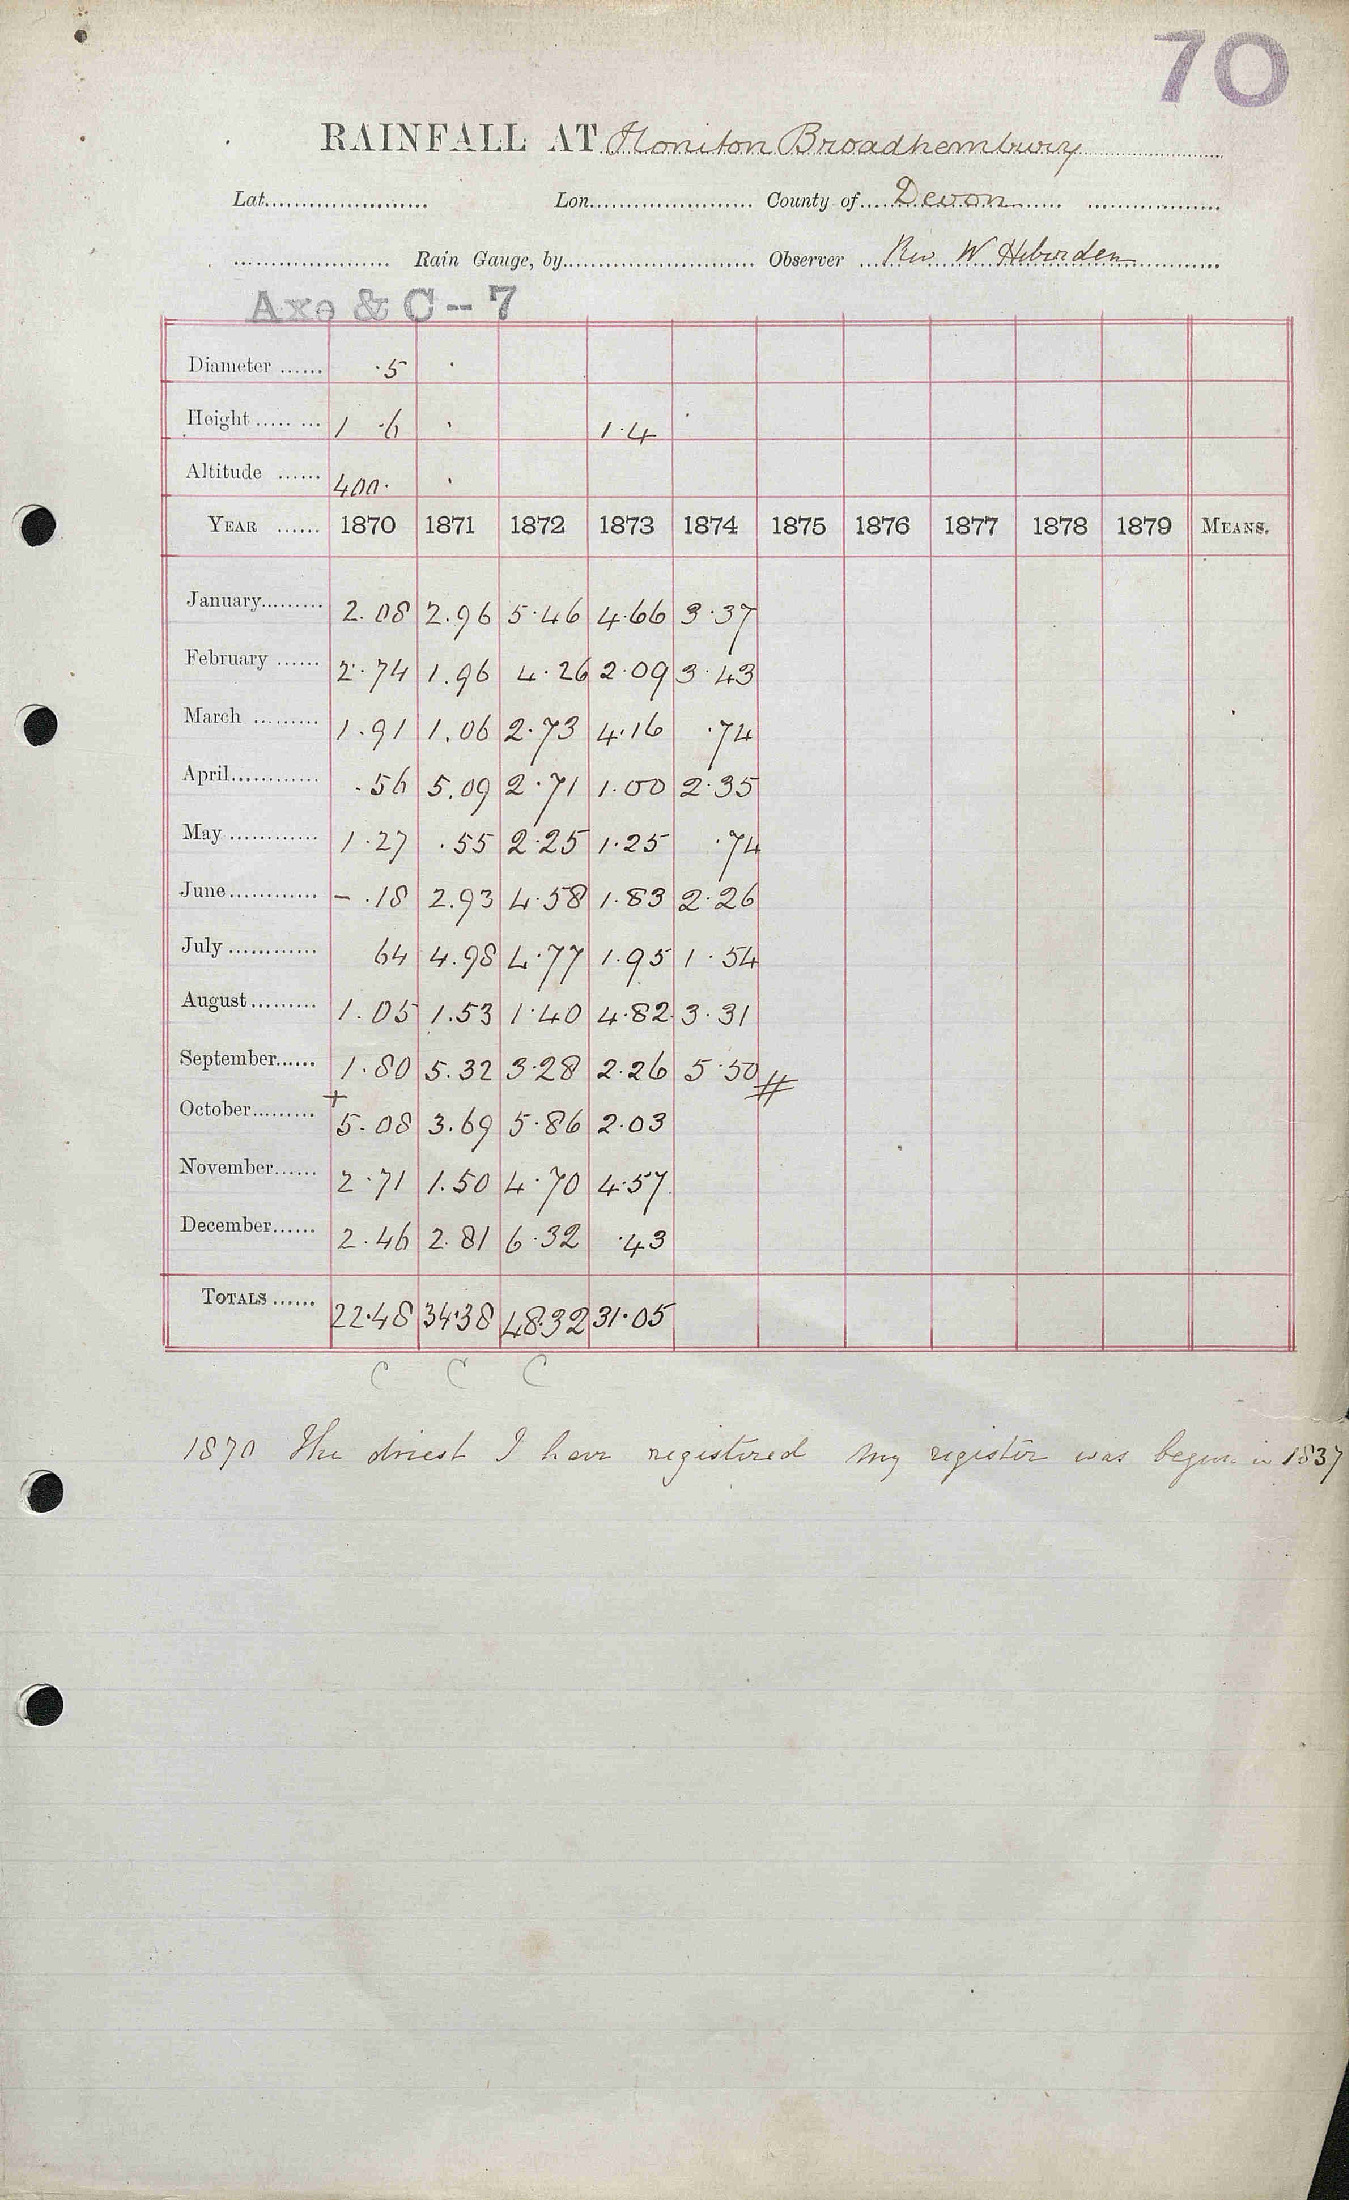 70
RAINFALL AT Honiton Broadhembury
Lat. Lon. County of Devon
Rain Gauge, by Observer Rev W Heberden
Axe & C - 7
Diameter ...... .5
Height ........ 1 .6 1.4
Altitude ...... 400.
YEAR ...... 1870 1871 1872 1873 1874 1875 1876 1877 1878 1879 MEANS.
January......... 2.08 2.96 5.46 4.66 3.37
February ...... 2.74 1.96 4.26 2.09 3.43
March ......... 1.91 1.06 2.73 4.16 .74
April............ .56 5.09 2.71 1.00 2.35
May ............ 1.27 .55 2.25 1.25 .74
June............ - .18 2.93 4.58 1.83 2.26
July ............ 64 4.98 4.77 1.95 1.54
August......... 1.05 1.53 1.40 4.82 3.31
September...... 1.80 5.32 3.28 2.26 5.50 #
October......... + 5.08 3.69 5.86 2.03
November...... 2.71 1.50 4.70 4.57
December...... 2.46 2.81 6.32 .43
TOTALS ...... 22.48 34.38 48.32 31.05
C C C
1870 The driest I have registered My register was begun in 1837